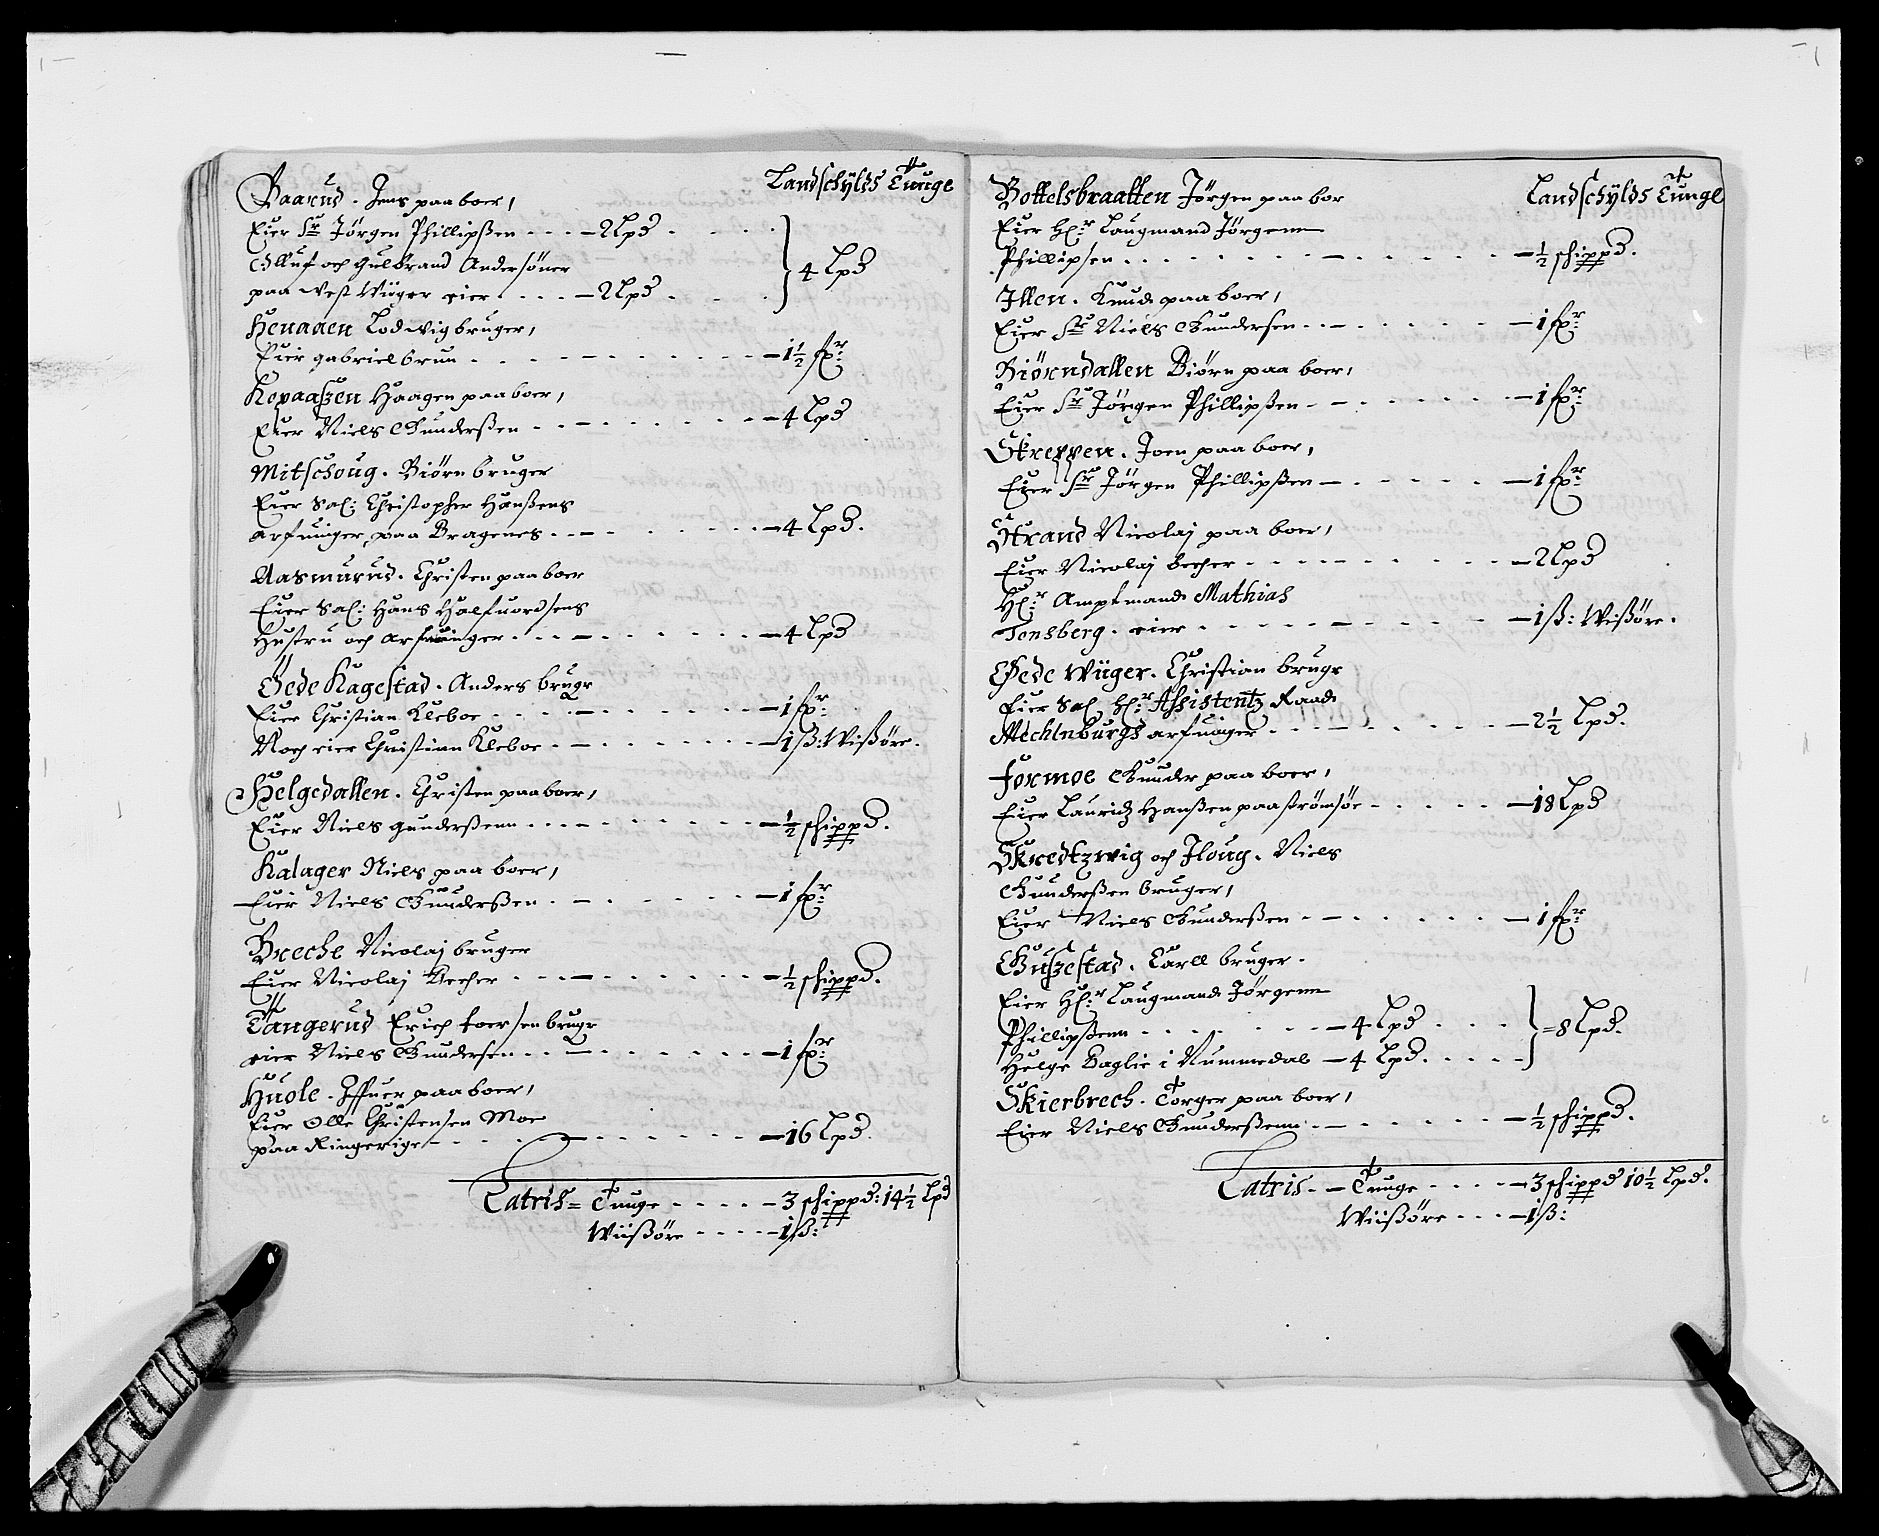 Landschylds Tunge
Baarud. Jens paa boer,
Eier Sr Jørgen Phillipßen - - - - 2 Lpd
Olluf och Gulbrand Andersøner
paa West Wiiger eier - - - - 2 Lpd
4 Lpd
Henaaen Lodwig bruger,
Eier Gabriel brun - 1½ fxr:
Kopaaszen Haagen paa boer,
Eier Niels Gunderßen - 4 Lpd
Mitschoug. Biørn bruger
Eier Sal: Christopher Hanßens
arfuinger, paa Bragenes - 4 Lpd.
Aasmurud. Christen paa boer
Eier Sal: Hans Halfuordsens
Hustru och arfuinger - 4 Lpd
Øede Kagestad. Anders brugr
Eier Christian Kleboe - 1 fxr:
Noch eier Christian Kleboe - 1 ß: Wißøre.
Helgedallen. Christen paa boer,
Eier Niels gunderßenn - ½ schippd.
Kalager Niels paa boer,
Eier Niels Gunderßen - 1 fxr:
Breche Nicolaj bruger
Eier Nicolaj Becher - ½ schippd.
Tangerud Erich toersen brugr
eier Niels Gundersen - 1 fxr:
Huole. Iffuer paa boer,
Eier Olle Christensen Moe
paa Ringerige - 16 Lpd.
Latris = Tunge - - - - 3 schippd: 14½ Lpd
Wiißøre - - - - 1 ß:
Landschylds Tunge
Bottelsbraatten Jørgen paa bor
Eier Hr: Laugmand Jørgenn
Phillipsen - ½ schippd.
Illen. Knud paa boer,
Eier Sr Niels Gundersen - 1 fxr:
Biørndallen Biørn paa boer,
Eier Sr Jørgen Phillipßen - 1 fxr:
Streppen. Joen paa boer,
Eier Sr Jørgen Phillipßen - 1 fxr:
Strand Nicolaj paa boer,
Eier Nicolaj becher - 2 Lpd
Hr: Amptmand Mathias
Tonsberg. eier - 1 ß: Wißøre.
Øede Wiiger. Christian brugr
Eier Sal Hr: Assistentz Raad
Mechlnburgs arfuinger - 2½ Lpd.
Formoe Gunder paa boer,
Eier Lauridz Hanßen paa strømsøe - 18 Lpd
Skredtzwig och Iloug. Niels
Gunderßen bruger,
Eier Niels Gunderßen - 1 fxr:
Guszestad. Carll bruger.
Eier Hr: Laugmand Jørgenn
Phillipßenn - 4 Lpd
Helge Baglie i Nummedal - 4 Lpd.
= 8 Lpd.
Skierbrech. Torger paa boer,
Eier Niels Gunderßenn - ½ schippd.
Latris. - Tunge - - - - 3 schippd 10½ Lpd.
Wiißøre - - - 1 ß: